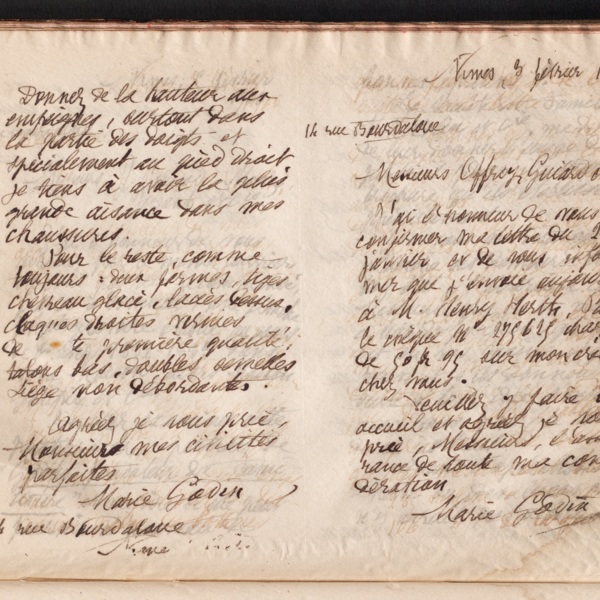 Donnez de la hauteur aux
empeignes, surtout dans
la partie des doigts et
spécialement au pied droit
je tiens à avoir la plus
grande aisance dans mes
chaussures.
Pour le reste, comme
toujours: deux formes, tiges
chevreau glacé, lacées
claques droites vernies
de première qualité,
talons bas, doubles semelles
liège non débordantes.
Agréez je vous prie,
Messieurs mes civilités
parfaites
Marie Godin
14 rue Bourdaloue
Nîmes 3 février
14 rue Bourdaloue
Messieurs Offroy, Guiard
J'ai l'honneur de vous
confirmer ma lettre du
janvier et de vous infor
mer que j'envoie aujour
à M. Henry Herth,
le chèque N° 275625
de 50 fr 95 sur mon
chez vous.
Veuillez y faire
accueil et agréez je vous
prie, Messieurs, l'assu
rance de toute ma con
dération
Marie Godin